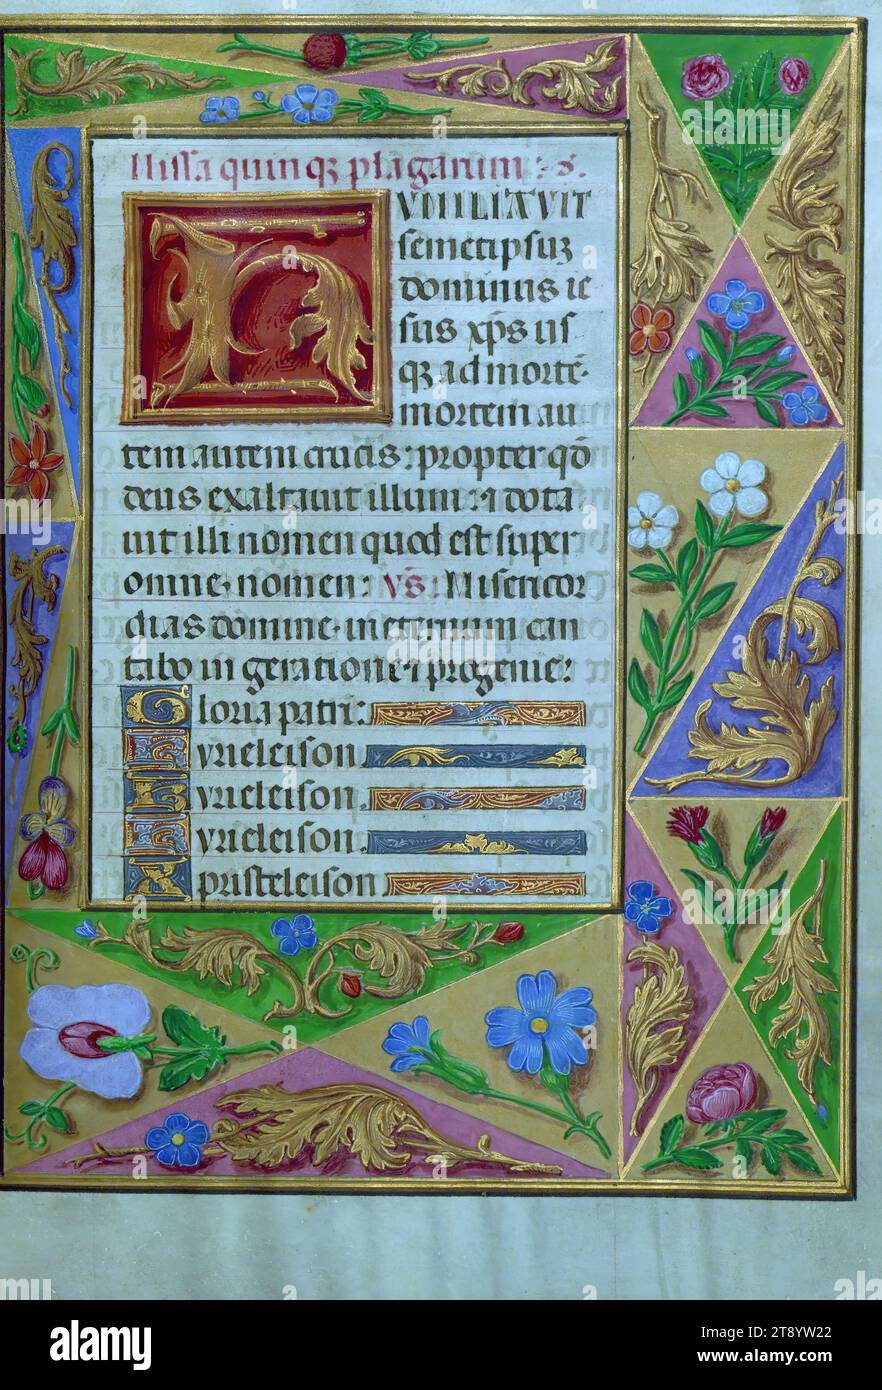 Missa quinqꝫ plagarum : ·S·
HVMILIAVIT
semetipsuꝫ
dominus ie
sus xp̄s us
qꝫ ad mortē·
mortem au
tem autem crucis : propter qđ
deus exaltauit illum : ⁊ dota
uit illi nomen quod est super
omne· nomen : Vs̄ : Misericor
dias domine· in eternum can
tabo in geratione ⁊ progenie :
Gloria patri :
Kyrieleison
Kyrieleison
Kyrieleison
Kpristeleison
alamy
Image ID: 2T81YW22
www.alamy.com